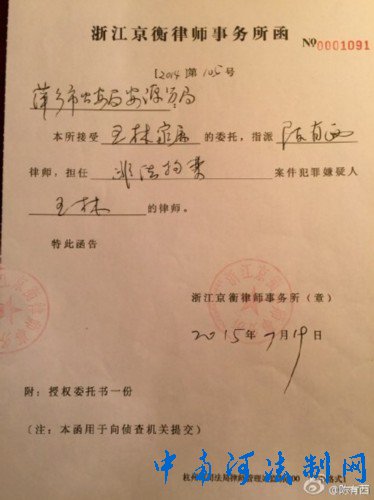 浙江京衡律师事务所函
No 0001091
[2014]第105号
萍乡市公安局安源分局
本所接受王林家属的委托，指派陈有西
律师，担任非法拘禁案件犯罪嫌疑人
王林的律师。
特此函告
浙江京衡律师事务所（章）
2015年7月19日
附：授权委托书一份
（注：本函用于向侦查机关提交）
中南河法制网
杭州市司法局律师管理
格式）
@陈有西